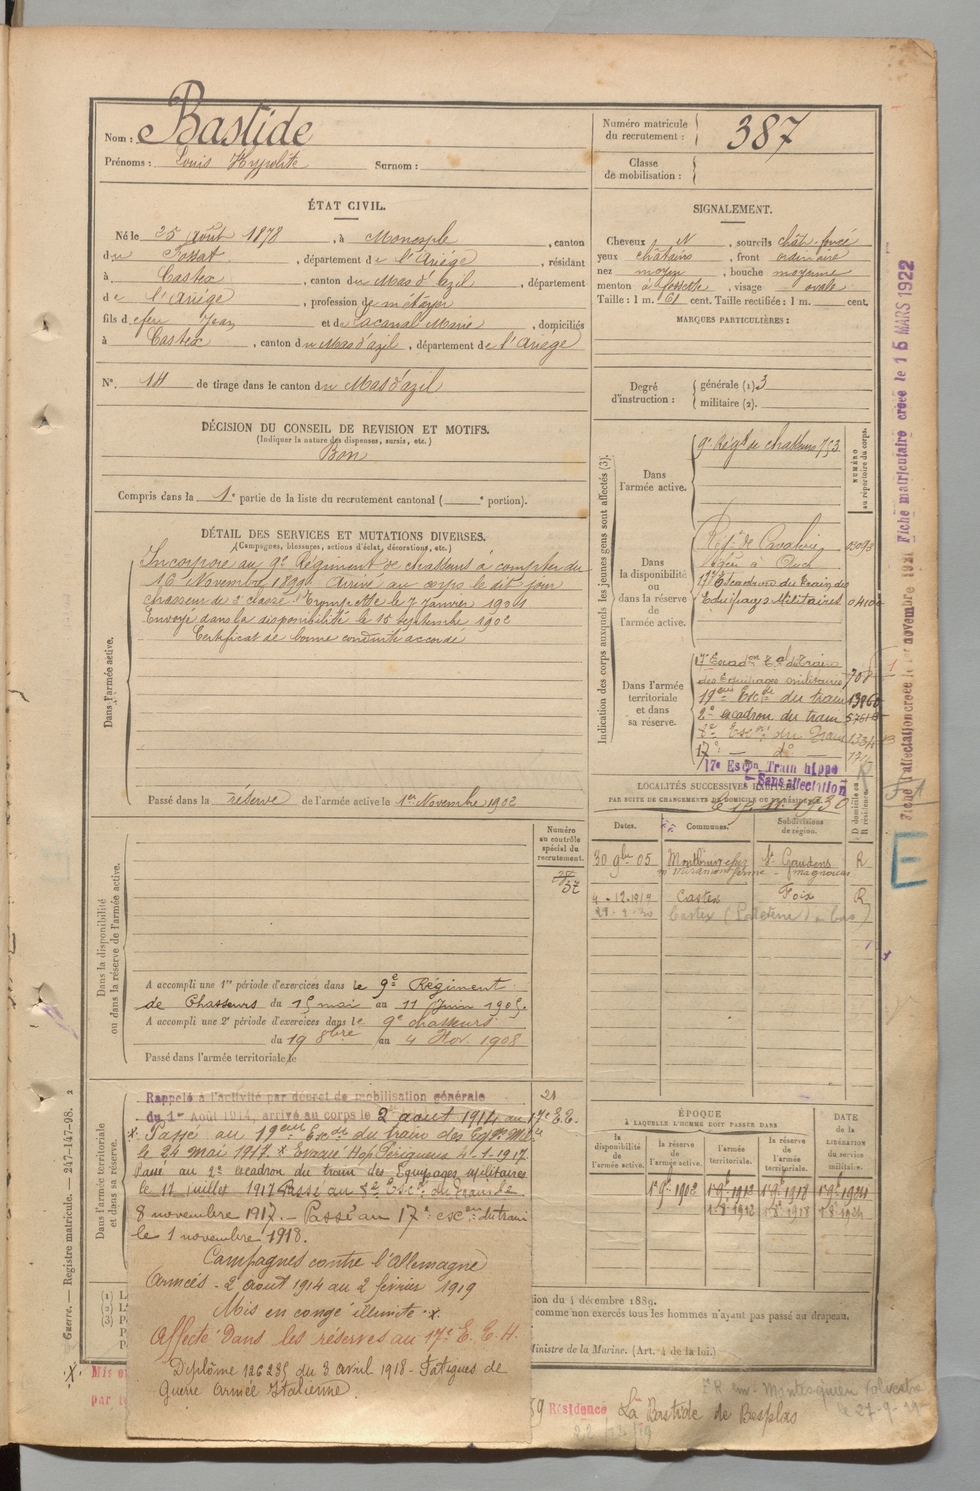 Nom : Bastide
Prénoms : Louis Hypolite Surnom :
Numéro matricule du recrutement : 387
Classe de mobilisation :
ÉTAT CIVIL.
Né le 25 août 1878, à Monesple, canton
du Fossat, département de l'Ariège, résidant
à Castex, canton du Mas d'azil, département
de l'Ariège, profession de métayer
fils de feu Jean et de Lacanal Marie, domiciliés
à Castex, canton du Mas d'azil, département de l'Ariège
N°. 14 de tirage dans le canton du Mas d'azil
DÉCISION DU CONSEIL DE REVISION ET MOTIFS.
(Indiquer la nature des dispenses, sursis, etc.)
Bon
Compris dans la 1e partie de la liste du recrutement cantonal ( e portion).
SIGNALEMENT.
Cheveux N, sourcils chât. foncé
yeux châtains, front ordinaire
nez moyen, bouche moyenne
menton à fossette, visage ovale
Taille : 1 m. 61 cent. Taille rectifiée : 1 m. cent.
MARQUES PARTICULIÈRES :
Degré d'instruction : générale (1) 3
militaire (2).
DÉTAIL DES SERVICES ET MUTATIONS DIVERSES.
(Campagnes, blessures, actions d'éclat, décorations, etc.)
Dans l'armée active.
Incorporé au 9e Régiment de chasseurs à compter du
16 Novembre 1899. Arrivé au corps le dit jour
chasseur de 2e classe. Trompette le 7 Janvier 1901
Envoyé dans la disponibilité le 15 Septembre 1902
Certificat de bonne conduite accordé
Passé dans la réserve de l'armée active le 1er Novembre 1902
Indication des corps auxquels les jeunes gens sont affectés (3).
NUMÉRO au répertoire du corps.
Dans l'armée active.
9e Régt de chasseurs 753
Dans la disponibilité ou dans la réserve de l'armée active.
17e Escadron du train des
Equipages Militaires
Dans l'armée territoriale et dans sa réserve.
17e Escadon Tal du Train
des Equipages militaires 708
19ème Escon du train 13960
2e escadron du train
17e — do
17e Escon Train hippo
Sans affectation
LOCALITÉS SUCCESSIVES HABITÉES
PAR SUITE DE CHANGEMENTS DE DOMICILE OU DE RÉSIDENCE.
Dates. Communes. Subdivisions de région. D domicile ou R résidence.
30 9bre 05 St Gaudens R
4-12-1919 Castex Foix R
Dans la disponibilité ou dans la réserve de l'armée active.
Numéro au contrôle spécial du recrutement.
37
A accompli une 1re période d'exercices dans le 9e Régiment
de Chasseurs du 15 mai au 11 Juin 1905.
A accompli une 2e période d'exercices dans le 9e chasseurs
du 19 8bre au 4 Nov. 1908
Passé dans l'armée territoriale le
Dans l'armée territoriale et dans sa réserve.
Rappelé à l'activité par décret de mobilisation générale
du 1er Août 1914, arrivé au corps le 2 aout 1914 au 17e E.T.
Passé au 19eme Escon du train des Eqges Mres
le 24 mai 1917. x Evacué Hop. Périgueux 4-1-1917
Passé au 2e escadron du train des Equipages militaires
le 11 juillet 1917. Passé au Esc. du Train le
8 novembre 1917. — Passé au 17e escon du train
le 1 novembre 1918.
Campagnes contre l'Allemagne
Armées - 2 aout 1914 au 2 fevrier 1919
Mis en congé illimité x.
Affecté dans les réserves au 17e E. T. H.
Diplôme 126235 du 3 avril 1918 - Fatigues de
Guerre Armée Italienne.
ÉPOQUE
À LAQUELLE L'HOMME DOIT PASSER DANS
la disponibilité de l'armée active. la réserve de l'armée active. l'armée territoriale. la réserve de l'armée territoriale. DATE de la LIBÉRATION du service militaire.
1er 9e 1902 1er 9e 1912 1er 9e 1918 1er 9e 1924
tion du 4 décembre 1889.
comme non exercés tous les hommes n'ayant pas passé au drapeau.
Ministre de la Marine. (Art. 4 de la loi.)
Guerre. — Registre matricule. — 247-147-98. 2
Fiche matriculaire créée le 16 MARS 1922
E
Mis en
par
Résidence La Bastide de Besplas
22/12/19